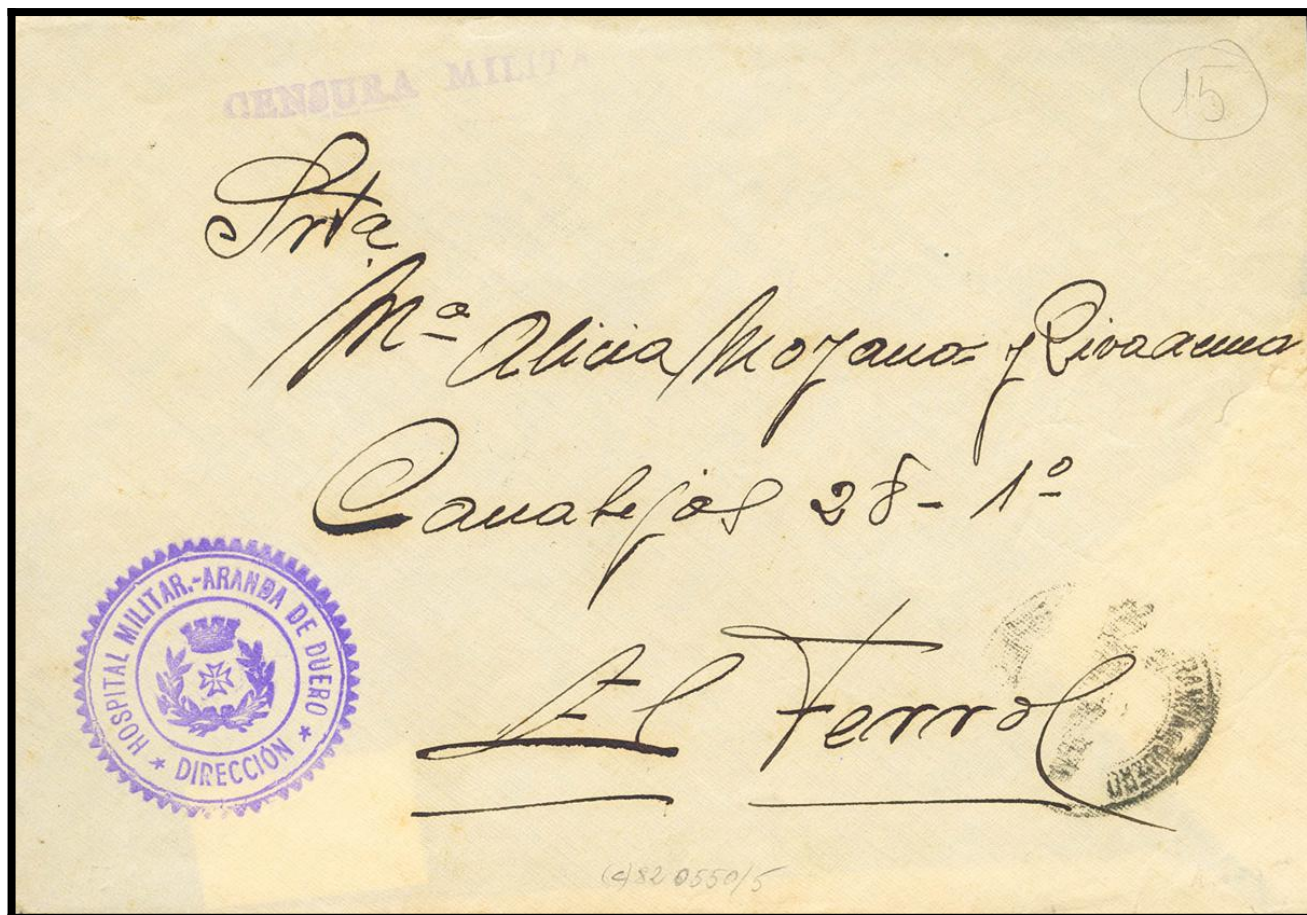 CENSURA MILITA
15
Srta
Mª Alicia Moyano y Rivadeneira
Canalejas 28-1º
El Ferrol
HOSPITAL MILITAR.-ARANDA DE DUERO
★ DIRECCIÓN ★
(c)82 0550/5